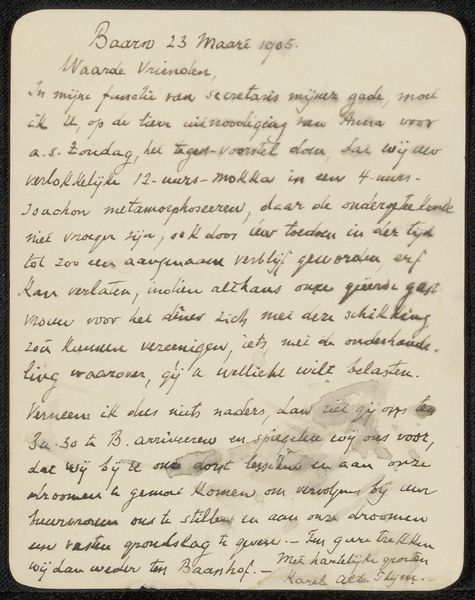 Baarn 23 Maart 1905.
Waarde Vrienden,
In mijne functie van secretaris mijner gade, moet
ik U, op de lieve uitnoodiging van Anna voor
a.s. Zondag, het tegen-voorstel doen, dat wij uw
verlokkelijke 12-uurs-mokka in een 4-uurs-
souchon metamorphoseeren, daar de ondergeteekende
niet vroeger zijn, ook door uw toedoen in der tijd
tot zoo een aangenaam verblijf geworden, erf
kan verlaten, indien althans onze gast
vrouw voor het diner zich met deze schikking
zou kunnen vereenigen, iets met de onderhande-
ling waarover, gij U wellicht wilt belasten.
Verneem ik dus niets naders, dan ziet gij ons ten
3u.30 te B. arriveeren en spiegelen wij ons voor,
dat wij bij U onze dorst lesschen en aan onze
droomen te gemoet komen om vervolgens bij uw
buurvrouw ons te stillen en aan onze droomen
een vasten grondslag te geven. — Ten gure trekken
wij dan weder ten Baarnhof. —
Met hartelijke groeten
Karel Alb. Thijm.